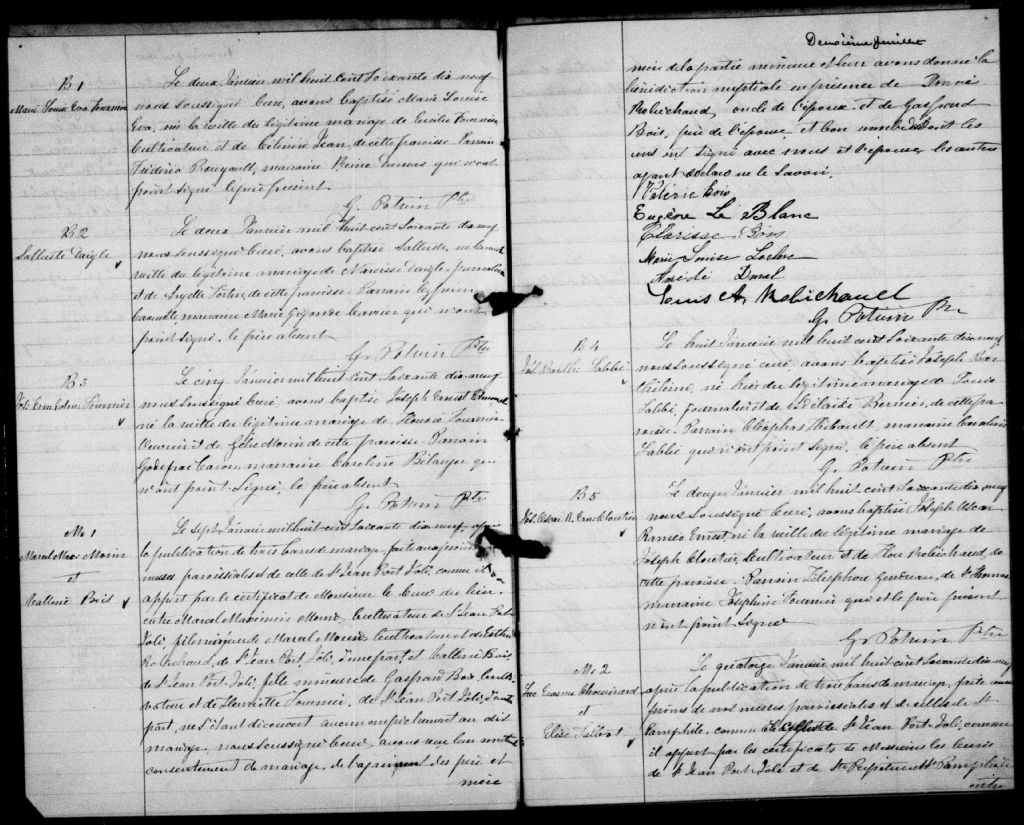 B 1
Marie Louise Eva Fournier
Le deux Janvier mil huit cent soixante dix-neuf
nous soussigné Curé, avons baptisé Marie Louise
Eva, née la veille du légitime mariage de Fournier
Cultivateur et de Jean, de cette paroisse. Parrain
Frédéric marraine Reine Dumas qui n'ont
point signé le père présent
G. Potvin Ptre
B 2
Salluste Daigle
Le deux Janvier mil huit cent soixante dix-neuf
nous soussigné Curé, avons baptisé Salluste, né la
veille du légitime mariage de Narcisse Daigle, journalier
et de Fortin, de cette paroisse. Parrain
marraine Marie qui n'ont
point signé, le père absent
G. Potvin Ptre
B 3
Jos. Ern. Edm. Fournier
Le cinq Janvier mil huit cent soixante dix-neuf
nous soussigné Curé, avons baptisé Joseph Ernest Edmond
né la veille du légitime mariage de Fournier
et de Morin de cette paroisse. Parrain
Godefroi Caron, marraine Caroline Bélanger qui
n'ont point signé, le père absent.
G. Potvin Ptre
M 1
Marcel Max. Morin
et
Vallerie Bois
Le sept Janvier mil huit cent soixante dix-neuf, après
la publication de trois bans de mariage, faite aux prônes
messes paroissiales et de celle de St Jean Port Joli, comme il
appert par le certificat de Monsieur le Curé du lieu,
entre Marcel Maximin Morin, Cultivateur de St Jean Port
Joli, fils mineur de Marcel Morin Cultivateur et de
Robichaud, de St Jean Port Joli, d'une part, et Vallerie Bois,
de St Jean Port Joli, fille mineure de Gaspard Bois, Culti-
vateur et de Henriette Fournier, de St Jean Port Joli, d'autre
part, ne s'étant découvert aucun empêchement au dit
mariage, nous soussigné Curé, avons reçu leur mutuel
consentement de mariage, de l'agrément des père et
mère
Deuxième feuillet
mère de la partie mineure et leur avons donné la
bénédiction nuptiale en présence de
Robichaud, oncle de l'époux et de Gaspard
Bois, père de l'épouse et bon nombre dont les
uns ont signé avec nous et l'épouse, les autres
ayant déclaré ne le savoir.
Valérie Bois
Eugène Le Blanc
Clarisse Bois
Marie Louise Leclerc
Amédé Duval
Louis A. Robichaud
G. Potvin Ptre
B 4
Labbé
Le huit Janvier mil huit cent soixante dix-neuf
nous soussigné curé avons baptisé Joseph Bar
thélemi, né hier du légitime mariage de
Labbé, journalier et de Adélaïde Bernier, de cette pa
roisse. Parrain Cléophas Thibault, marraine Caroline
Labbé qui n'ont point signé, le père absent
G. Potvin Ptre
B 5
Jos. Oscar R. Ern. Cloutier
Le douze Janvier mil huit cent soixante dix-neuf
nous soussigné Curé, avons baptisé Joseph Oscar
Roméo Ernest, né la veille du légitime mariage de
Joseph Cloutier, Cultivateur, et de Robichaud, de
cette paroisse. Parrain Télesphore Gendreau, de St Thomas
marraine Joséphine Fournier qui et le père présent
n'ont point signé
G. Potvin Ptre
M 2
Luc Erasme Chouinard
et
Elise
Le quatorze Janvier mil huit cent soixante dix-neuf
après la publication de trois bans de mariage, faite aux
prônes de nos messes paroissiales et de celles de St
Pamphile, comme de St Jean Port Joli, comme
il appert par les certificats de Messieurs les Curés
de St Jean Port Joli et de Ste Perpétue St Pamphile
entre